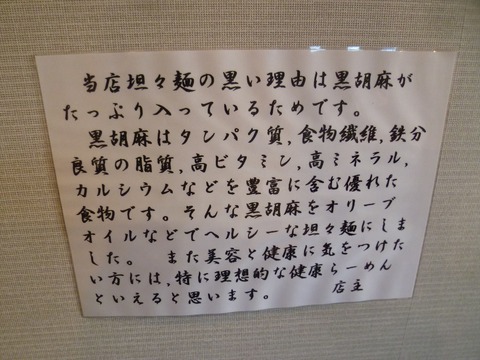 当店坦々麺の黒い理由は黒胡麻が
たっぷり入っているためです。
黒胡麻はタンパク質,食物繊維,鉄分
良質の脂質,高ビタミン,高ミネラル,
カルシウムなどを豊富に含む優れた
食物です。そんな黒胡麻をオリーブ
オイルなどでヘルシーな坦々麺にしま
した。 また美容と健康に気をつけた
い方には,特に理想的な健康らーめん
といえると思います。 店主